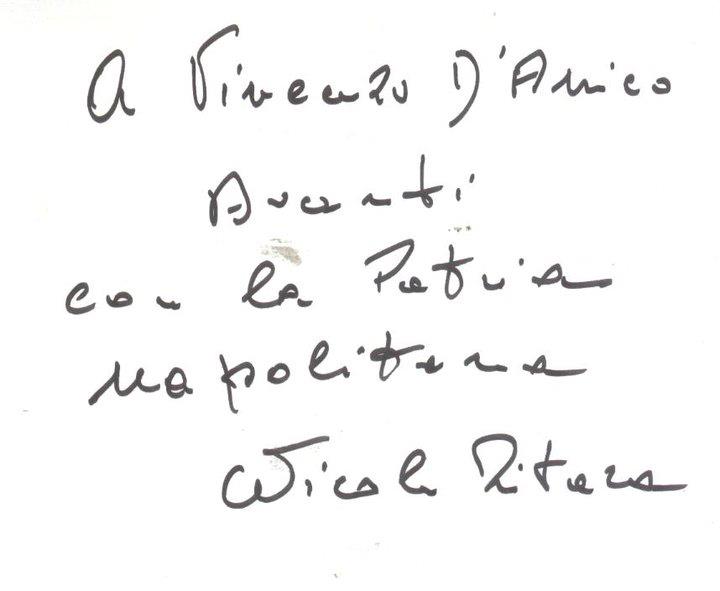 A Vincenzo D'Amico
Avanti
con la Patria
napolitana
Nicola Zitara